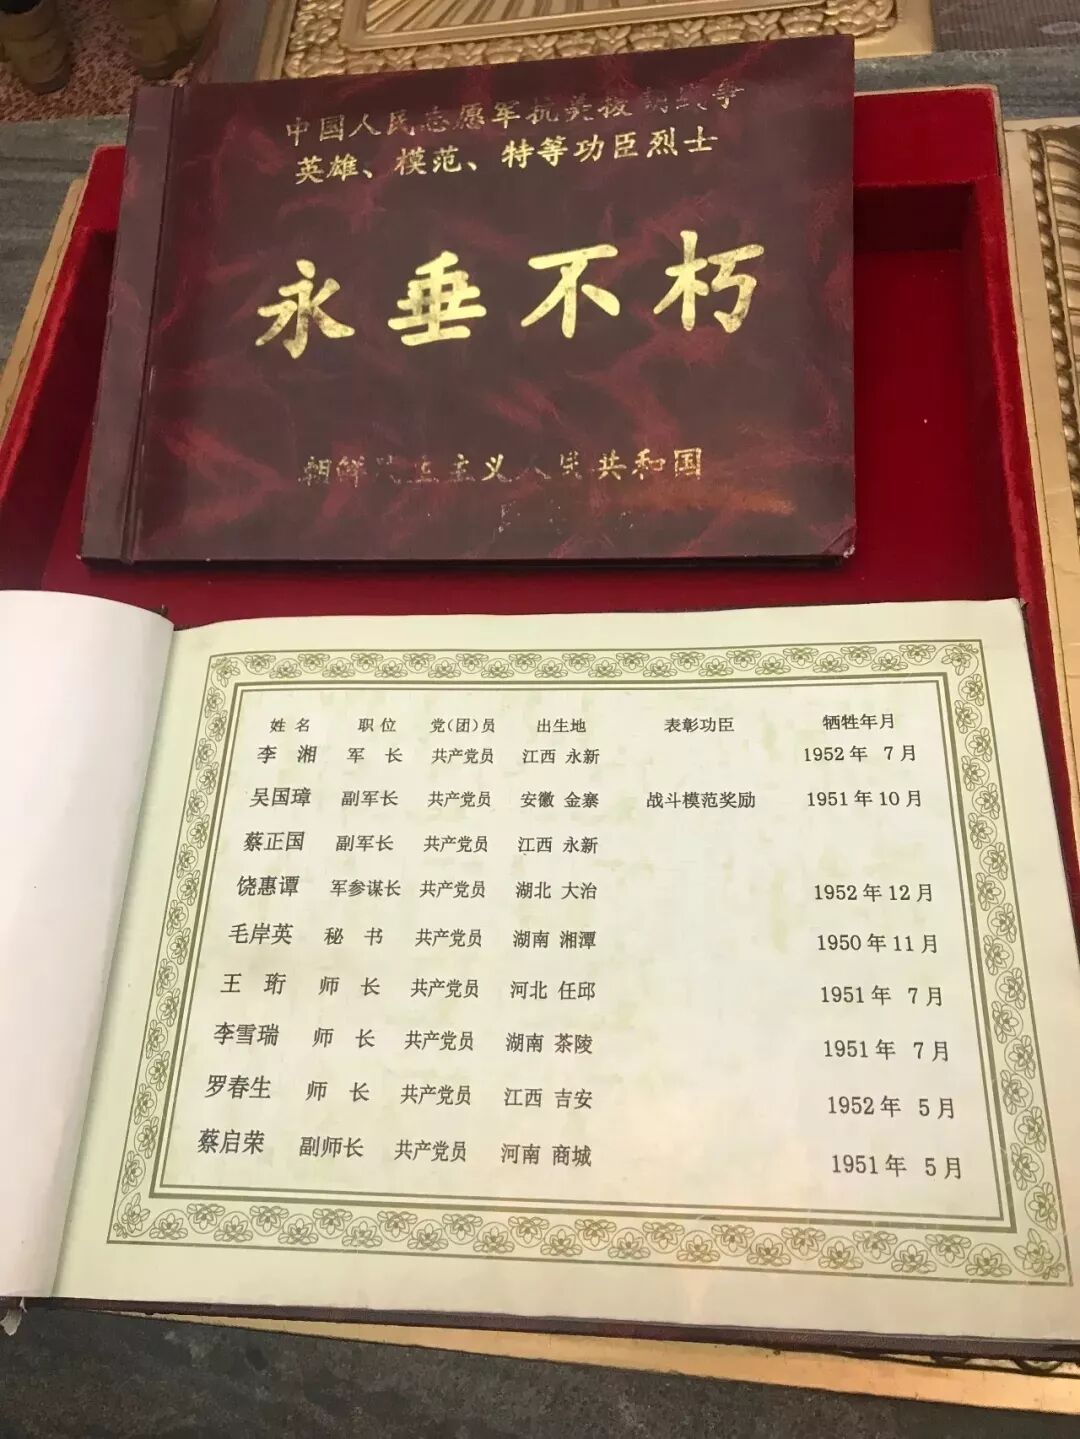 中国人民志愿军抗美援朝战争
英雄、模范、特等功臣烈士
永垂不朽
朝鲜民主主义人民共和国
姓 名 职 位 党(团)员 出生地 表彰功臣 牺牲年月
李 湘 军 长 共产党员 江西 永新 1952年 7月
吴国璋 副军长 共产党员 安徽 金寨 战斗模范奖励 1951年10月
蔡正国 副军长 共产党员 江西 永新
饶惠谭 军参谋长 共产党员 湖北 大冶 1952年12月
毛岸英 秘 书 共产党员 湖南 湘潭 1950年11月
王 珩 师 长 共产党员 河北 任邱 1951年 7月
李雪瑞 师 长 共产党员 湖南 茶陵 1951年 7月
罗春生 师 长 共产党员 江西 吉安 1952年 5月
蔡启荣 副师长 共产党员 河南 商城 1951年 5月